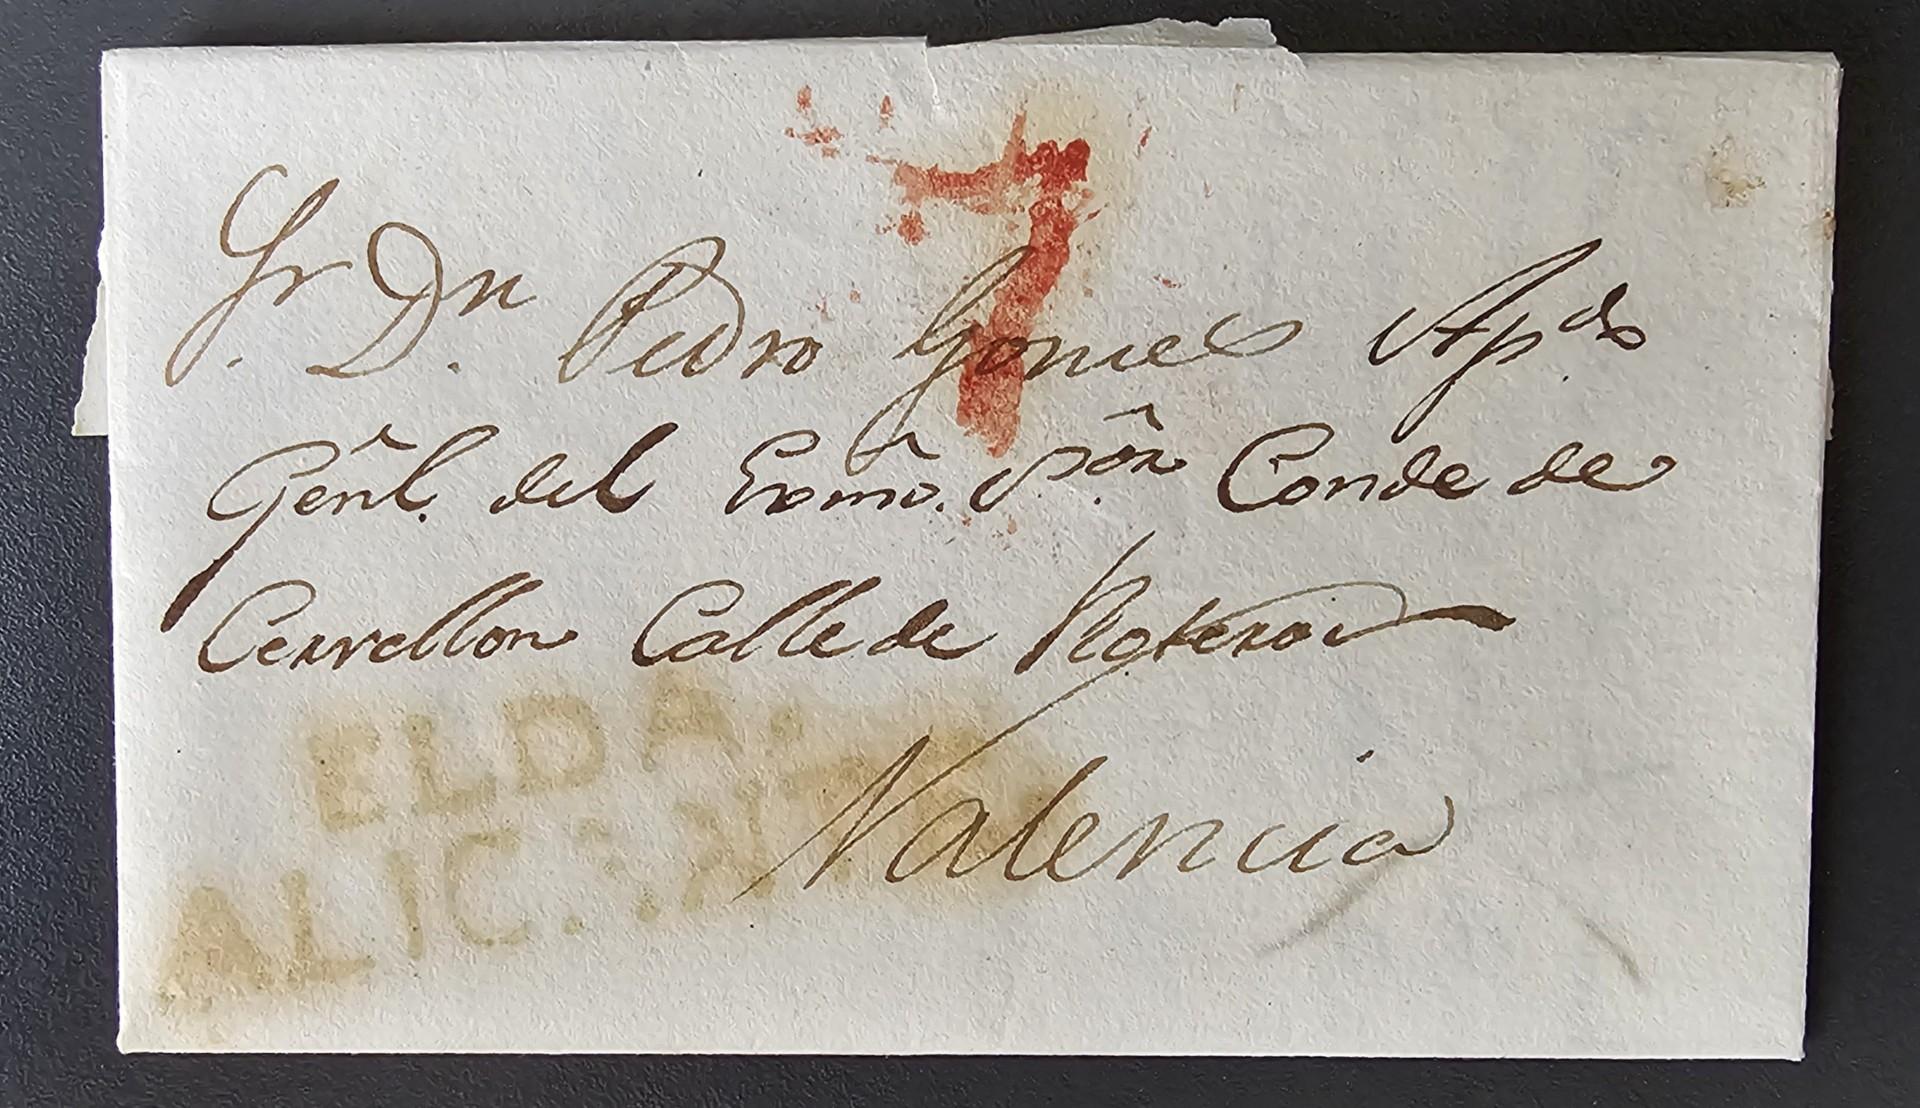 7
Sr. Dn. Pedro Gomez Ap.do
Gẽnl. del Exmõ. S.õr Conde de
Cervellon Calle de Roteros
Valencia
ELDA.
ALICANTE